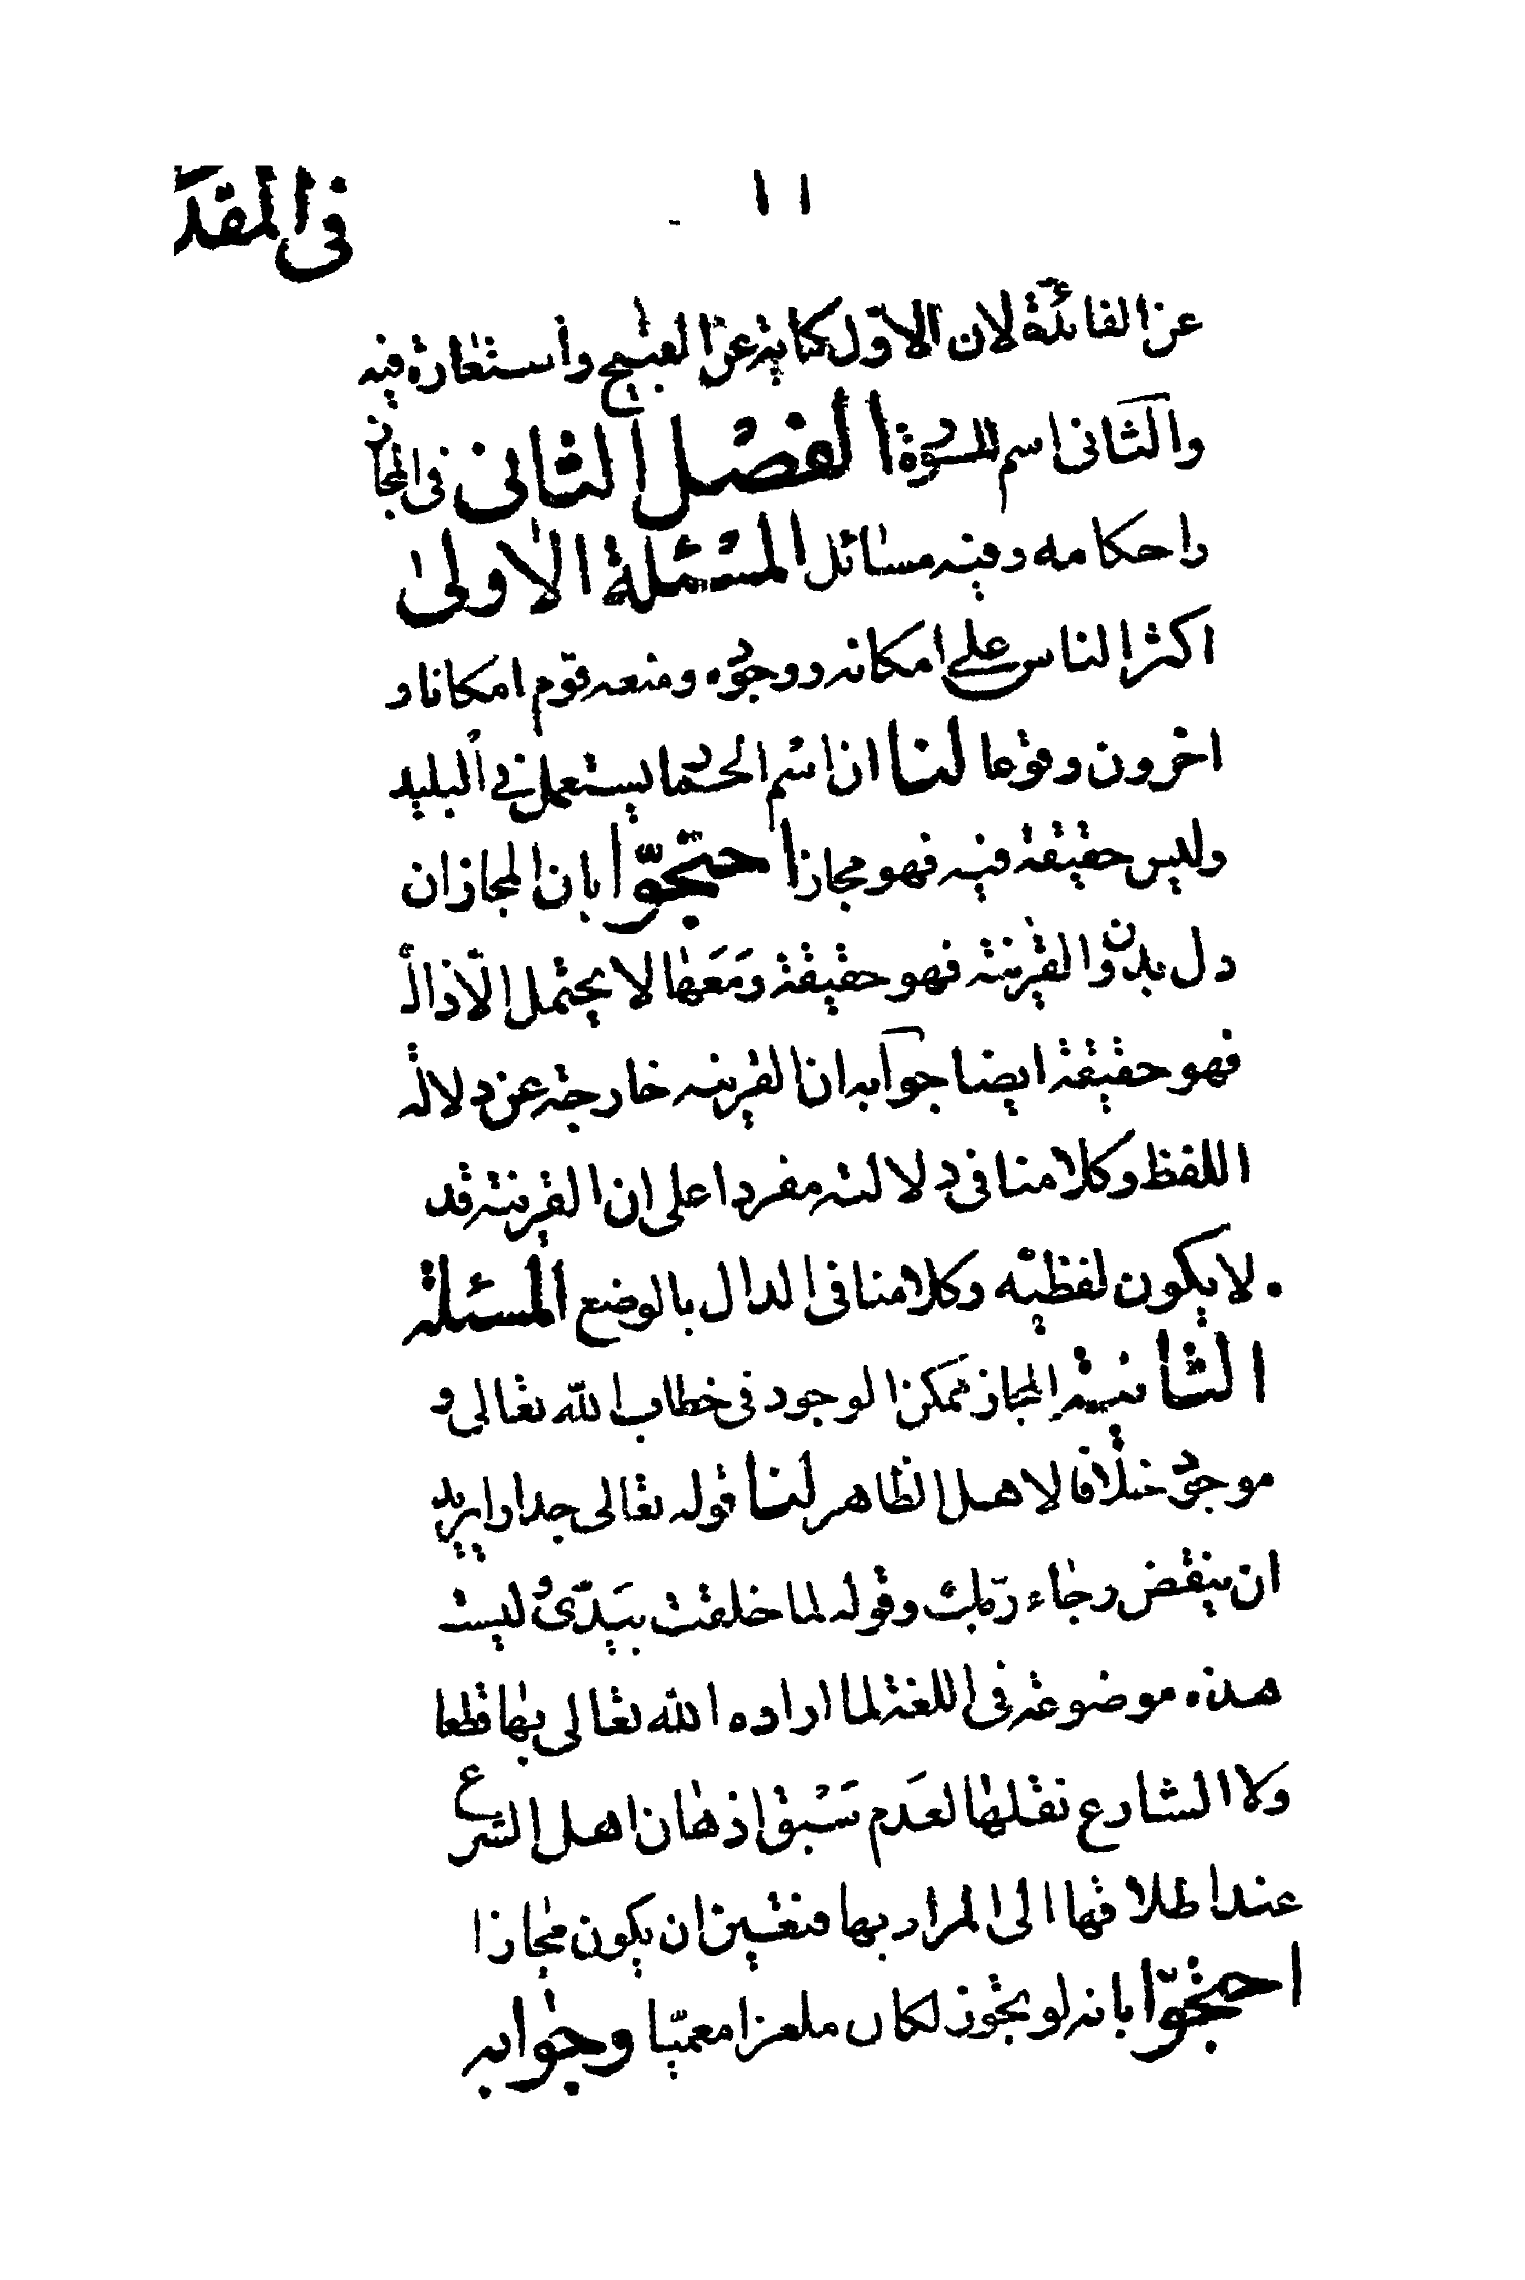 ١١
في المقد
عن الفائدة لان الاوّل كناية عن القبيح واستعارة فيه
والثانى اسم للسورة الفصل الثانى فى المجاز
واحكامه وفيه مسائل المسئلة الاولى
اكثر الناس على امكانه ووجوده ومنعه قوم امكانا و
اخرون وقوعا لنا ان اسم الحمار يستعمل في البليد
وليس حقيقة فيه فهو مجاز احتجّوا بان المجاز ان
دل بدون القرينة فهو حقيقة ومَعَها لا يحتمل الّا ذالك
فهو حقيقة ايضا جوابه ان القرينه خارجة عن دلالة
اللفظ وكلامنا فى دلالته مفردا على ان القرينة قد
لا يكون لفظيه وكلامنا فى الدال بالوضع المسئلة
الثانية المجاز ممكن الوجود فى خطاب الله تعالى و
موجود خلافا لاهل الظاهر لنا قوله تعالى جدارا يريد
ان ينقض رجاء ربّك وقوله لما خلقت بيَدَىّ ليست
هذه موضوعة فى اللغة لما اراده الله تعالى بها قطعا
ولا الشارع نقلها لعَدم سَبق اذهان اهل الشرع
عند اطلاقها الى المراد بها فتعين ان يكون مجازا
احتجّوا بانه لو يجوز لكان ملغزا معميّا وجوابه